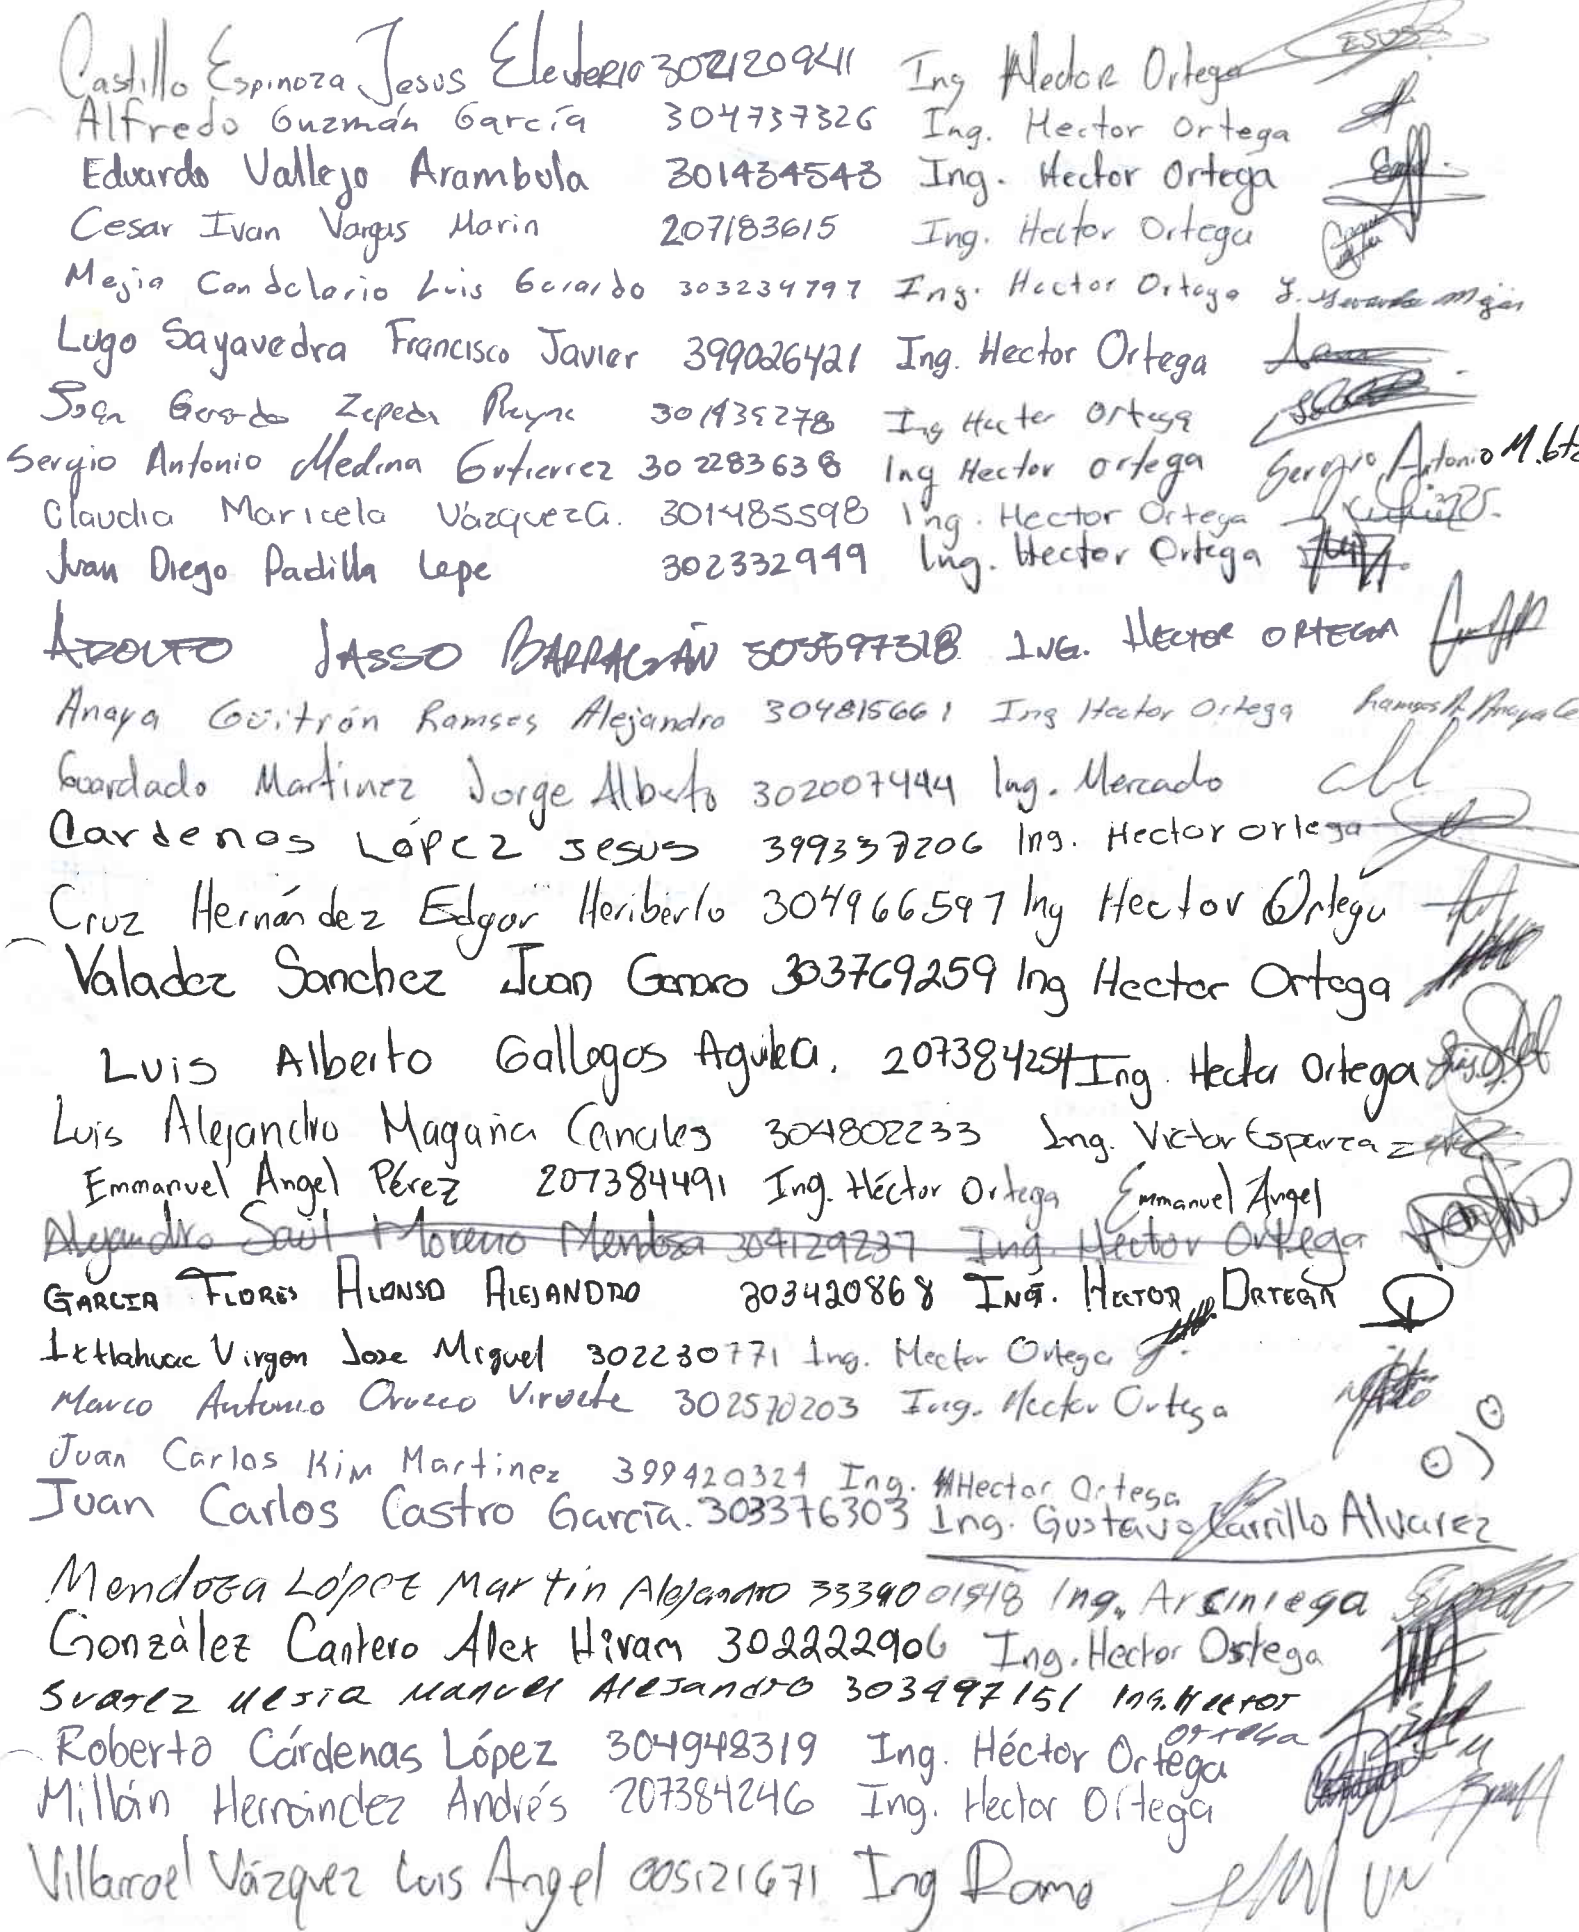 Castillo Espinoza Jesus Eleuterio 302120941 Ing Hector Ortega
Alfredo Guzmán García 304737326 Ing. Hector Ortega
Eduardo Vallejo Arambula 301434543 Ing. Hector Ortega
Cesar Ivan Vargas Marin 207183615 Ing. Hector Ortega
Mejia Candelario Luis Gerardo 303234797 Ing. Hector Ortega L. Gerardo Mejia
Lugo Sayavedra Francisco Javier 399026421 Ing. Hector Ortega
Gerardo Zepeda Reyna 301435278 Ing Hector Ortega
Sergio Antonio Medina Gutierrez 302283638 Ing Hector Ortega Sergio Antonio M. Gtz
Claudia Maricela VázquezG. 301485598 Ing. Hector Ortega
Juan Diego Padilla Lepe 302332949 Ing. Hector Ortega
ADOLFO JASSO BARRAGÁN 303597318 ING. HECTOR ORTEGA
Anaya Güitrón Ramses Alejandro 304815661 Ing Hector Ortega Ramses A. Anaya
Guardado Martinez Jorge Alberto 302007444 Ing. Mercado
Cardenas López Jesus 399337206 Ing. Hector ortega
Cruz Hernández Edgar Heriberto 304966597 Ing Hector Ortega
Valadez Sanchez Juan Genaro 303769259 Ing Hector Ortega
Luis Alberto Gallegos Aguilera. 207384254 Ing. Hector Ortega
Luis Alejandro Magaña Canales 304802233 Ing. Victor Esparza
Emmanuel Angel Pérez 207384491 Ing. Héctor Ortega Emmanuel Angel
Alejandro Saúl Moreno Mendoza 304129237 Ing. Hector Ortega
GARCIA FLORES ALONSO ALEJANDRO 303420868 ING. HECTOR ORTEGA
Ixtlahuac Virgen Jose Miguel 302230771 Ing. Hector Ortega
Marco Antonio Orozco Viruete 302570203 Ing. Hector Ortega
Juan Carlos Kim Martinez 399420324 Ing. Hector Ortega
Juan Carlos Castro García. 303376303 Ing. Gustavo Carrillo Alvarez
Mendoza López Martin Alejandro 3339001548 Ing. Arciniega
González Cantero Alex Hiram 302222906 Ing. Hector Ortega
Suarez Mejia Manuel Alejandro 303497151 Ing. Hector
Ortega
Roberto Cárdenas López 304948319 Ing. Héctor Ortega
Millán Hernández Andrés 207384246 Ing. Hector Ortega
Villarroel Vázquez Luis Angel 005121671 Ing Ramo